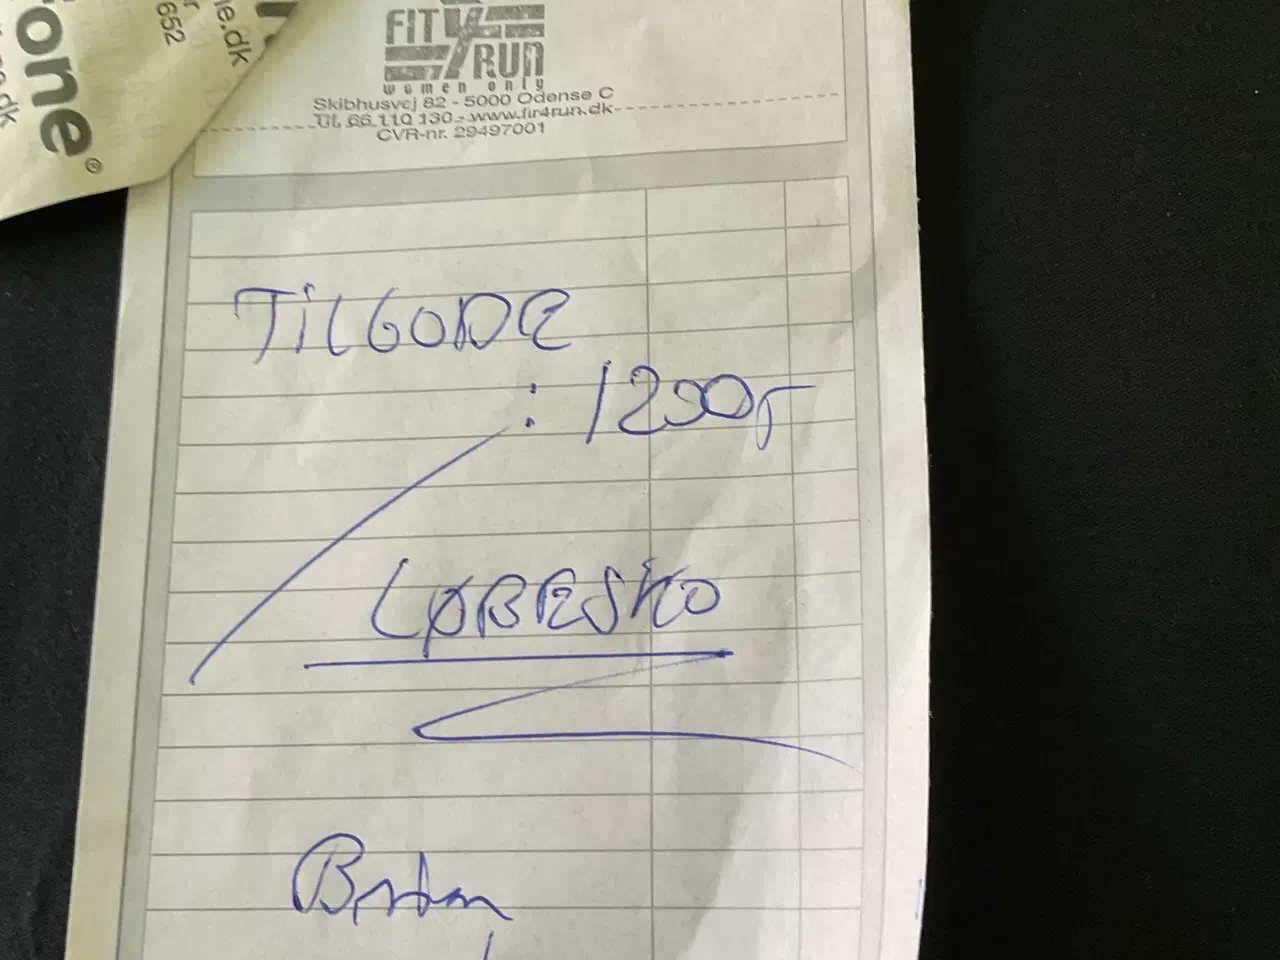 one®
652
ne.dk
FIT4RUN
women only
Skibhusvej 82 - 5000 Odense C
Tlf. 66 110 130 - www.fit4run.dk
CVR-nr. 29497001
TILGODE
: 1200,-
LØBESKO